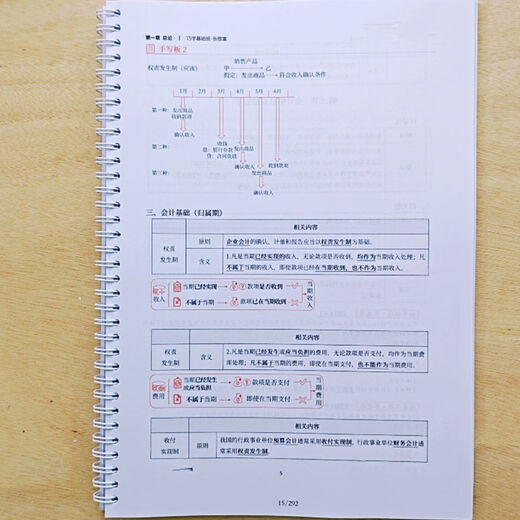 第一章 总论 | 巧学基础班·张敬富
手写板2
销售产品
权责发生制（应该） 甲→乙
假定：发出商品→符合收入确认条件
1月 2月 3月 4月 5月 6月
第一种： 发出商品
收到款项
确认收入
第二种： 收钱 发出商品
借：银行存款
贷：合同负债
确认收入 收到款项
第三种： 发出商品
确认收入
三、会计基础（归属期）
相关内容
权责发生制 原则 企业会计的确认、计量和报告应当以权责发生制为基础。
含义 1.凡是当期已经实现的收入，无论款项是否收到，均作为当期收入处理；凡
不属于当期的收入，即使款项已经在当期收到，也不作为当期收入。
收入 当期已经实现 款项是否收到 当期收入
不属于当期 款项已在当期收到
相关内容
权责发生制 含义 2.凡是当期已经发生或应当负担的费用，无论款项是否支付，均作为当期费
用处理；凡不属于当期的费用，即使在当期支付，也不能作为当期费用。
费用 当期已经发生或应当负担 款项是否支付 当期费用
不属于当期 即使在当期支付
相关内容
收付实现制 原则 我国的行政事业单位预算会计通常采用收付实现制，行政事业单位财务会计通
常采用权责发生制。
5
15/292